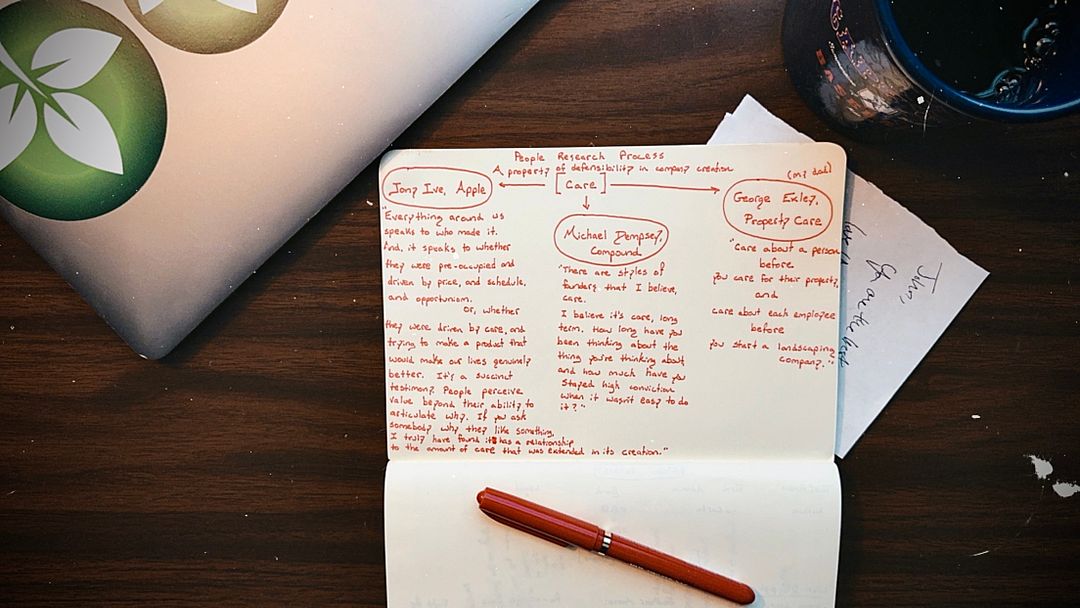 People Research Process
A property of defensibility in company creation
[Care]
Jony Ive, Apple
"Everything around us
speaks to who made it.
And, it speaks to whether
they were pre-occupied and
driven by price, and schedule,
and opportunism.
Or, whether
they were driven by care, and
trying to make a product that
would make our lives genuinely
better. It's a succinct
testimony. People perceive
value beyond their ability to
articulate why. If you ask
somebody why they like something,
I truly have found it has a relationship
to the amount of care that was extended in its creation."
Michael Dempsey,
Compound
"There are styles of
founders that I believe,
care.
I believe it's care, long
term. How long have you
been thinking about the
thing you're thinking about,
and how much have you
stayed high conviction
when it wasn't easy to do
it?"
(my dad)
George Exley,
Property Care
"Care about a person
before
you care for their property,
and
care about each employee
before
you start a landscaping
company."
John,
are the best